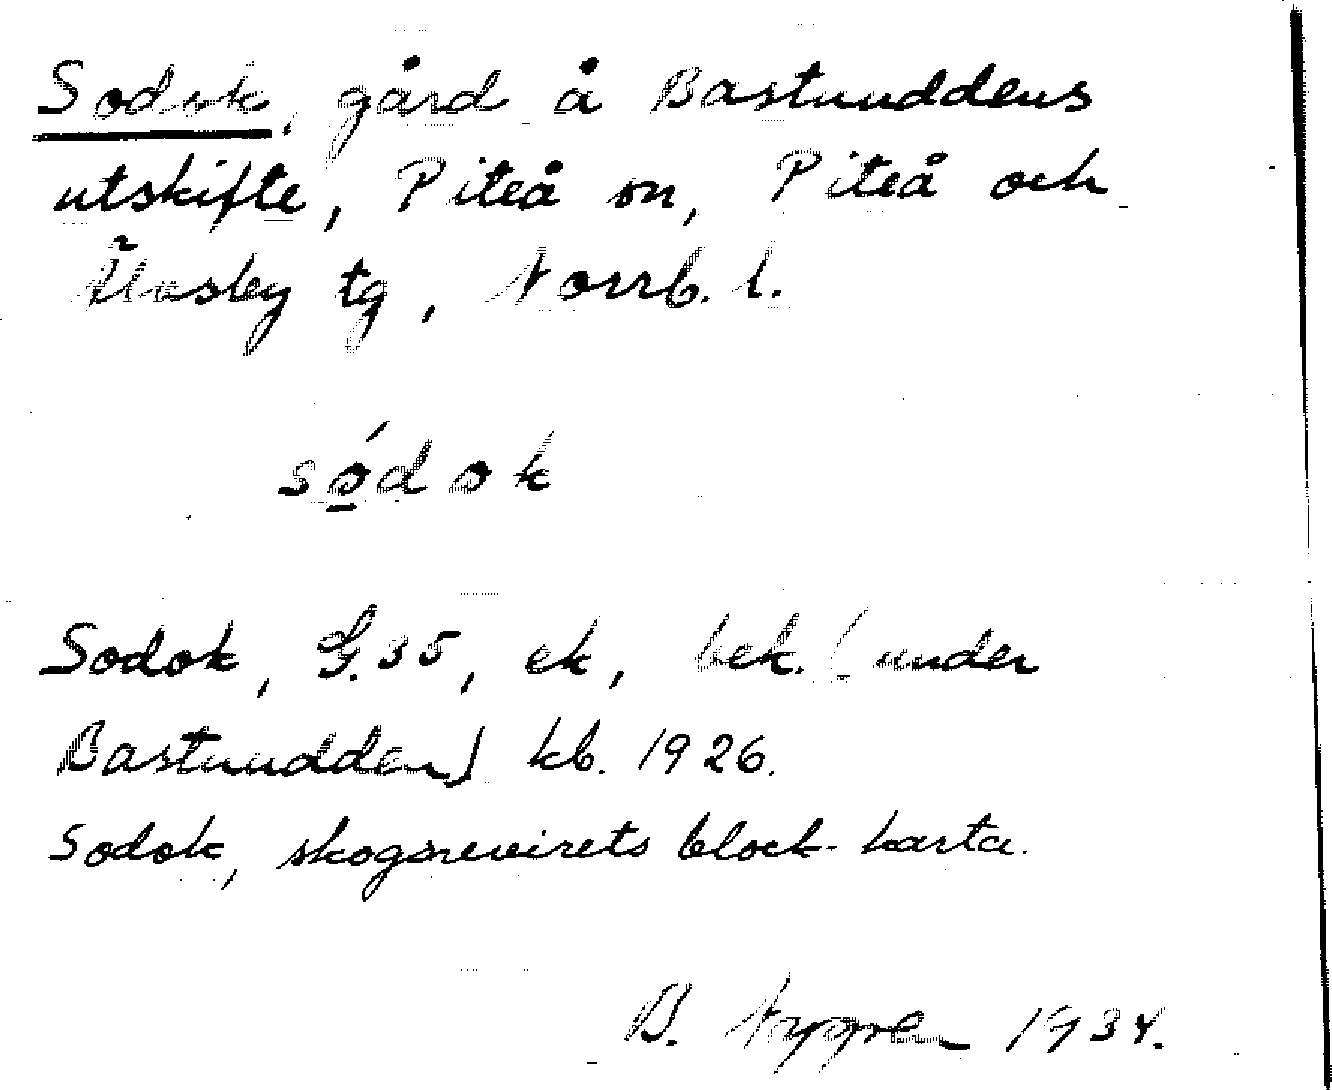 Sodok, gård å Bastuuddens
utskifte, Piteå sn, Piteå och
Älvsby tg, Norrb. l.
só̠dok
Sodok, G.35, ek, bek. (under
Bastuudden) kb. 1926.
Sodok, skogsrevirets block-karta.
B. Nygren 1934.